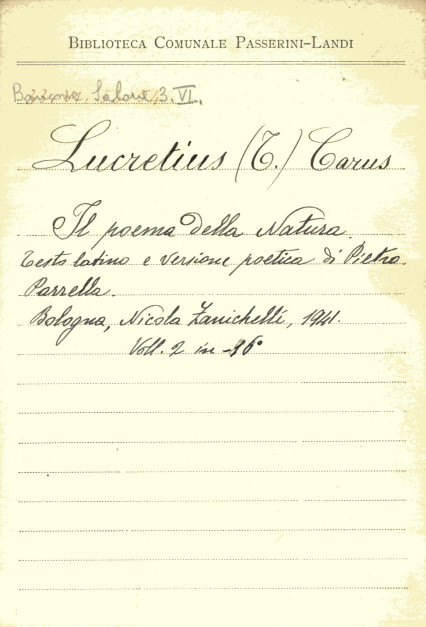 BIBLIOTECA COMUNALE PASSERINI-LANDI
Salone, 3. VI.
Lucretius (T.) Carus
Il poema della Natura.
Testo latino e versione poetica di Pietro
Parrella.
Bologna, Nicola Zanichelli, 1941.
Voll. 2 in-16°